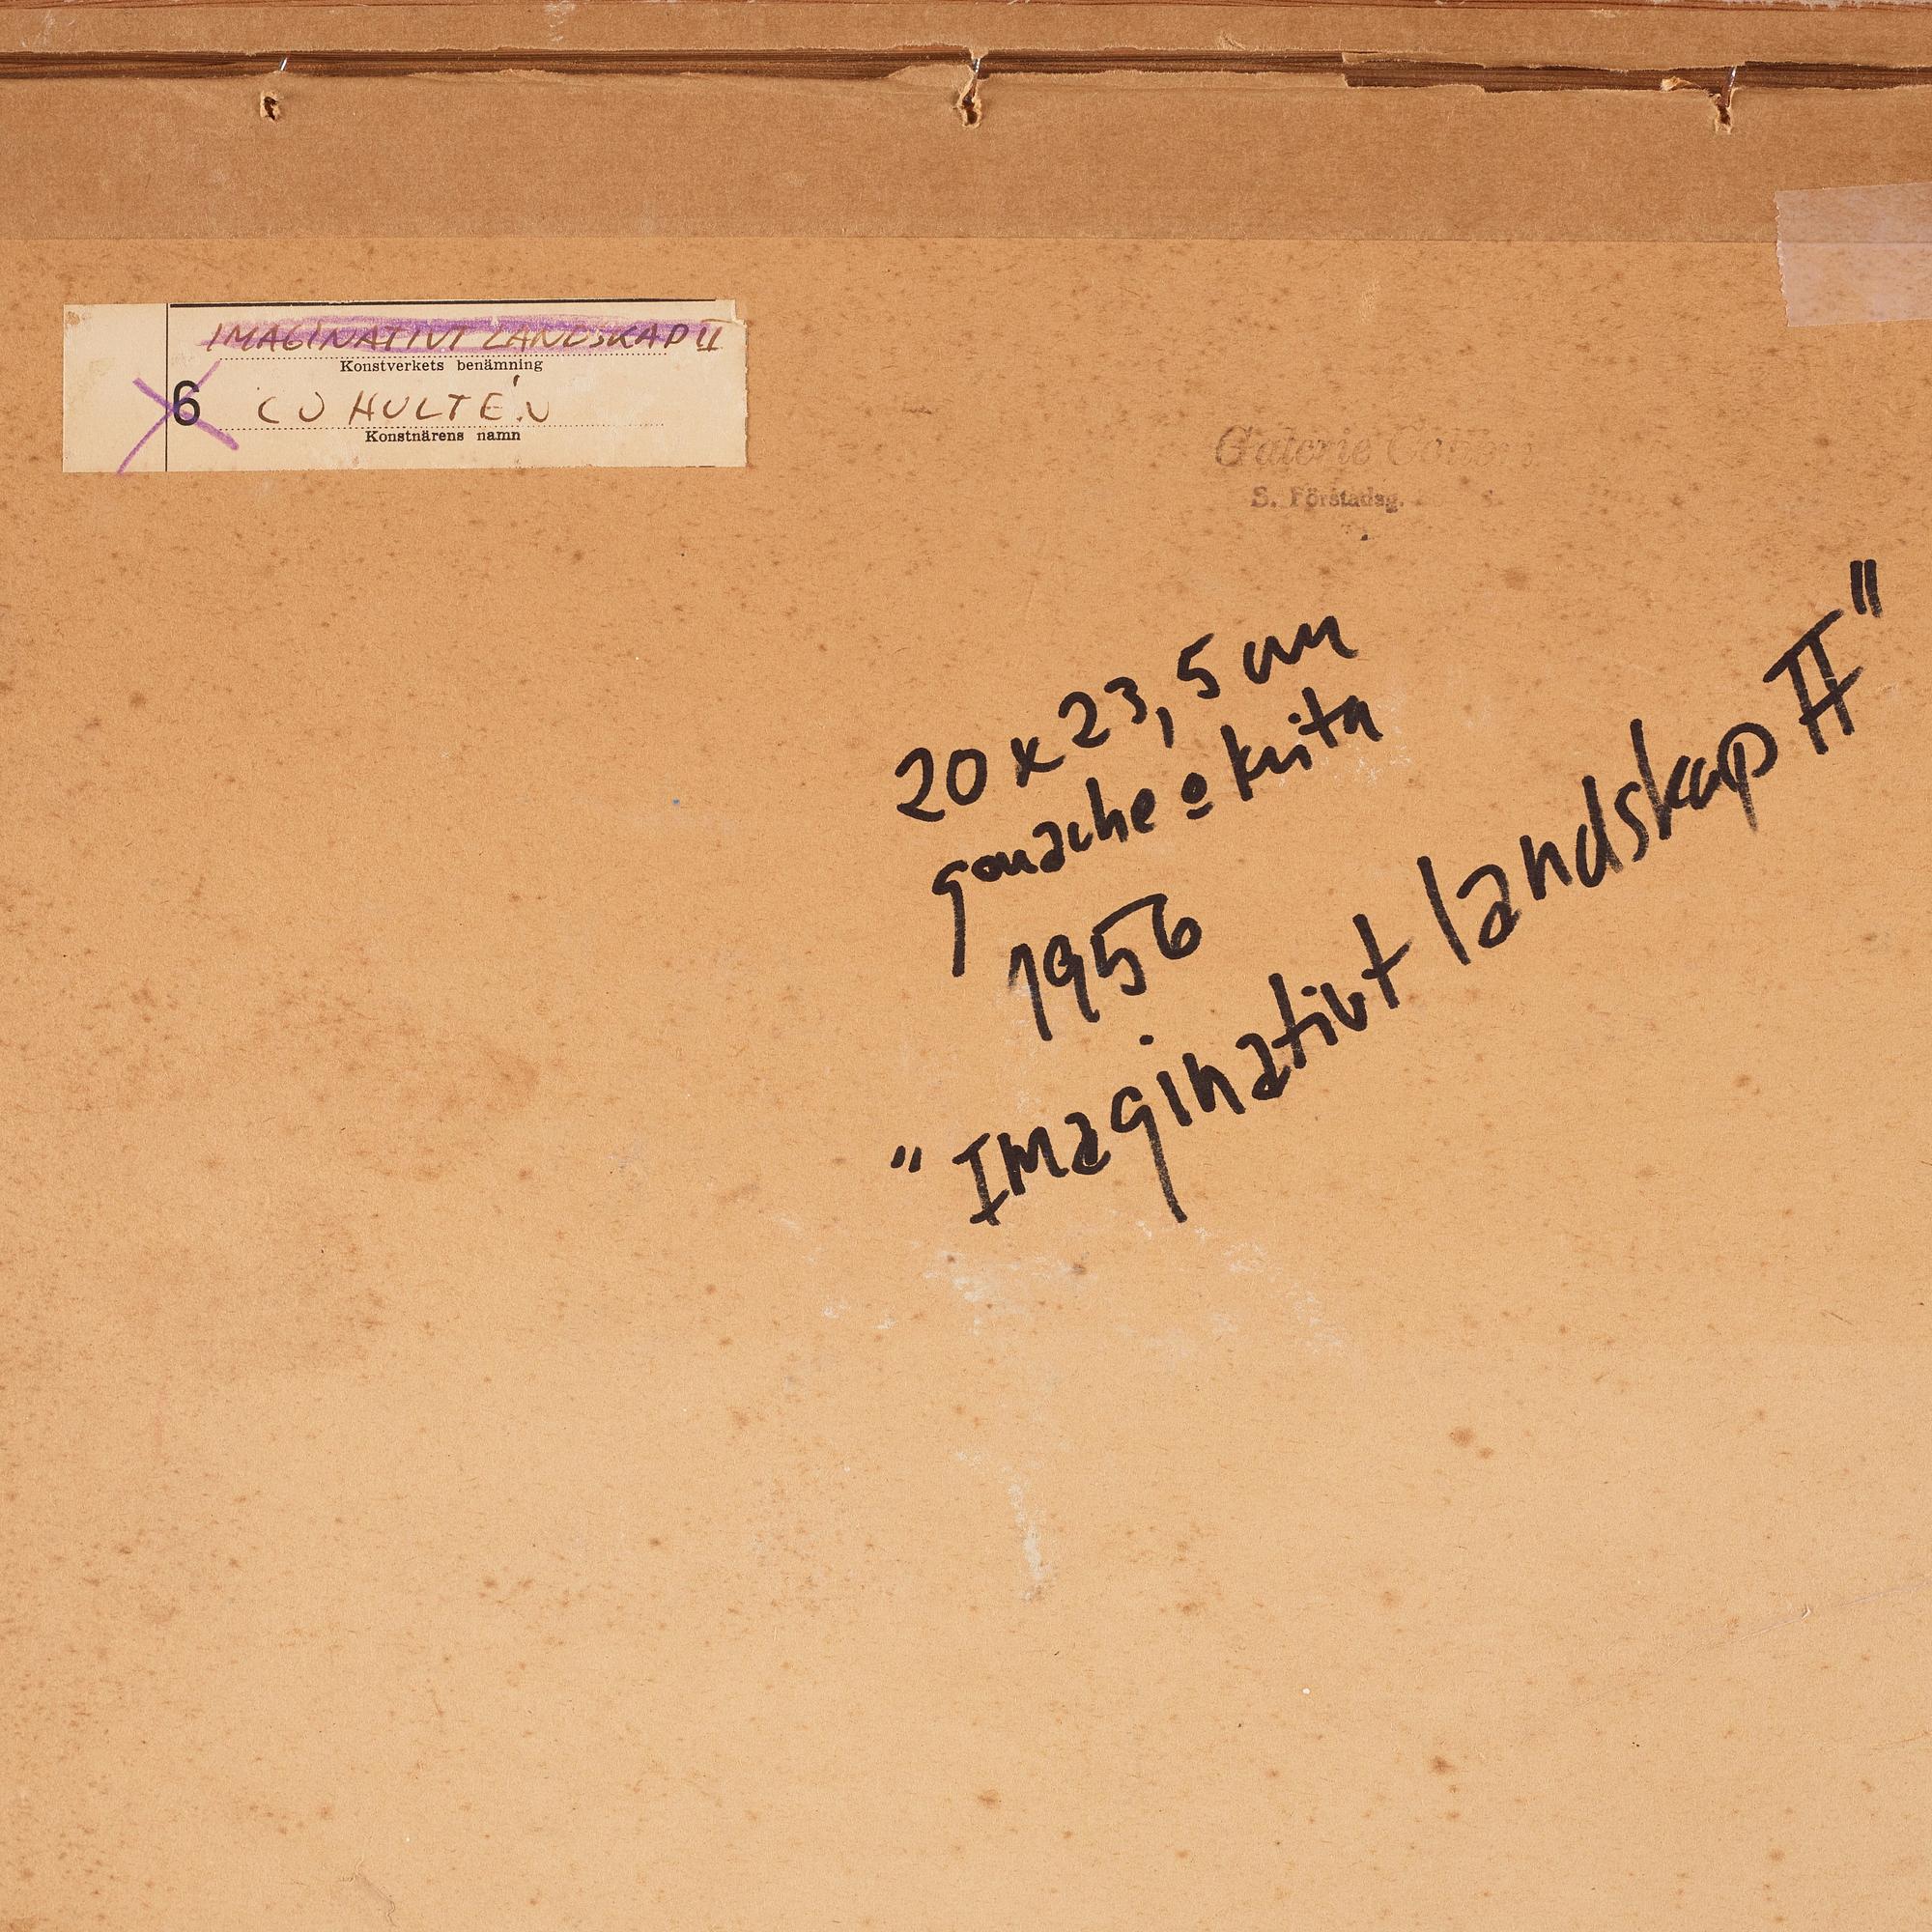 IMAGINATIVT LANDSKAP II
Konstverkets benämning
6 CO HULTÉN
Konstnärens namn
Galerie
S. Förstadsg.
20 x 23,5 cm
gouache o krita
1956
"Imaginativt landskap II"